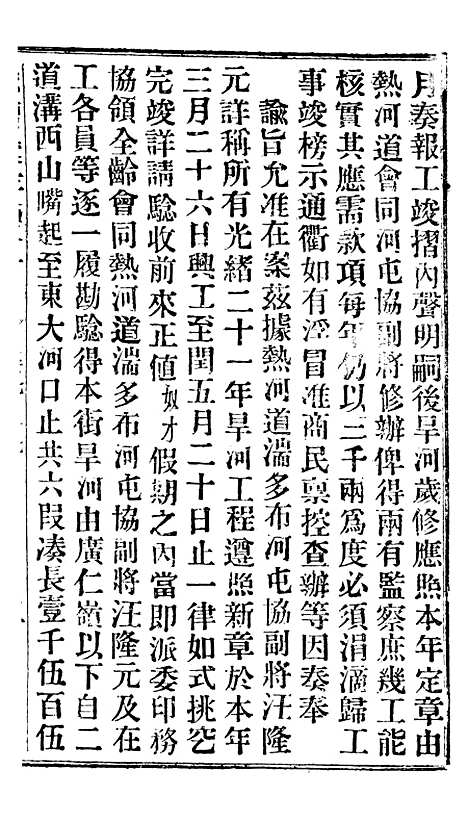 月奏報工竣摺內聲明嗣後旱河歲修應照本年定章由
熱河道會同河屯協副將修辦俾得兩有監察庶幾工能
核實其應需款項每年仍以三千兩爲度必須涓滴歸工
事竣榜示通衢如有浮冒准商民稟控查辦等因奏奉
諭旨允准在案茲據熱河道湍多布河屯協副將汪隆
元詳稱所有光緒二十一年旱河工程遵照新章於本年
三月二十六日興工至閏五月二十日止一律如式挑空
完竣詳請騐收前來正值奴才假期之內當即派委印務
協領全齡會同熱河道湍多布河屯協副將汪隆元及在
工各員等逐一履勘騐得本街旱河由廣仁嶺以下自二
道溝西山嘴起至東大河口止共六段湊長壹千伍百伍